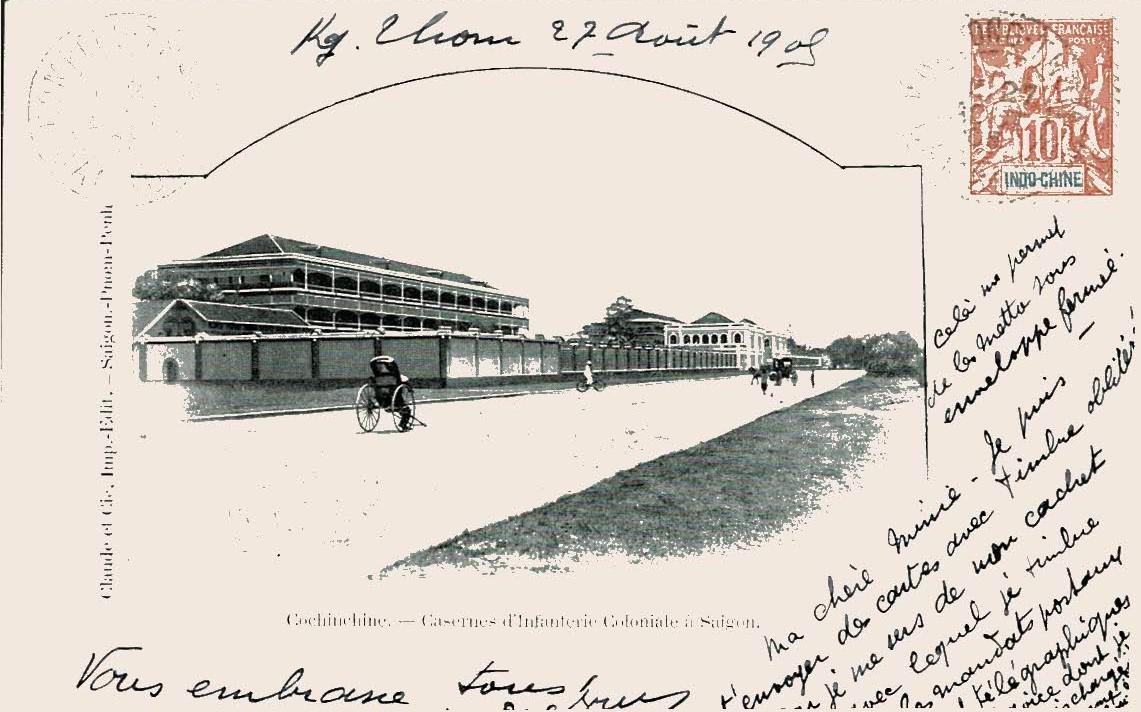 Kg. Thom 27 Août 1905
RÉPUBLIQUE FRANÇAISE
POSTE
10
INDO-CHINE
Claude et Cie, Imp.-Edit. – Saigon.-Pnom-Penh
celà me permet
de les mettre sous
enveloppe fermé.
Ma chère Mimie - Je puis
t'envoyer des cartes avec timbre oblitéré
je me sers de mon cachet
avec lequel je timbre
les mandats postaux
télégraphiques
dont je
Cochinchine. — Casernes d'Infanterie Coloniale à Saigon.
Vous embrasse tous